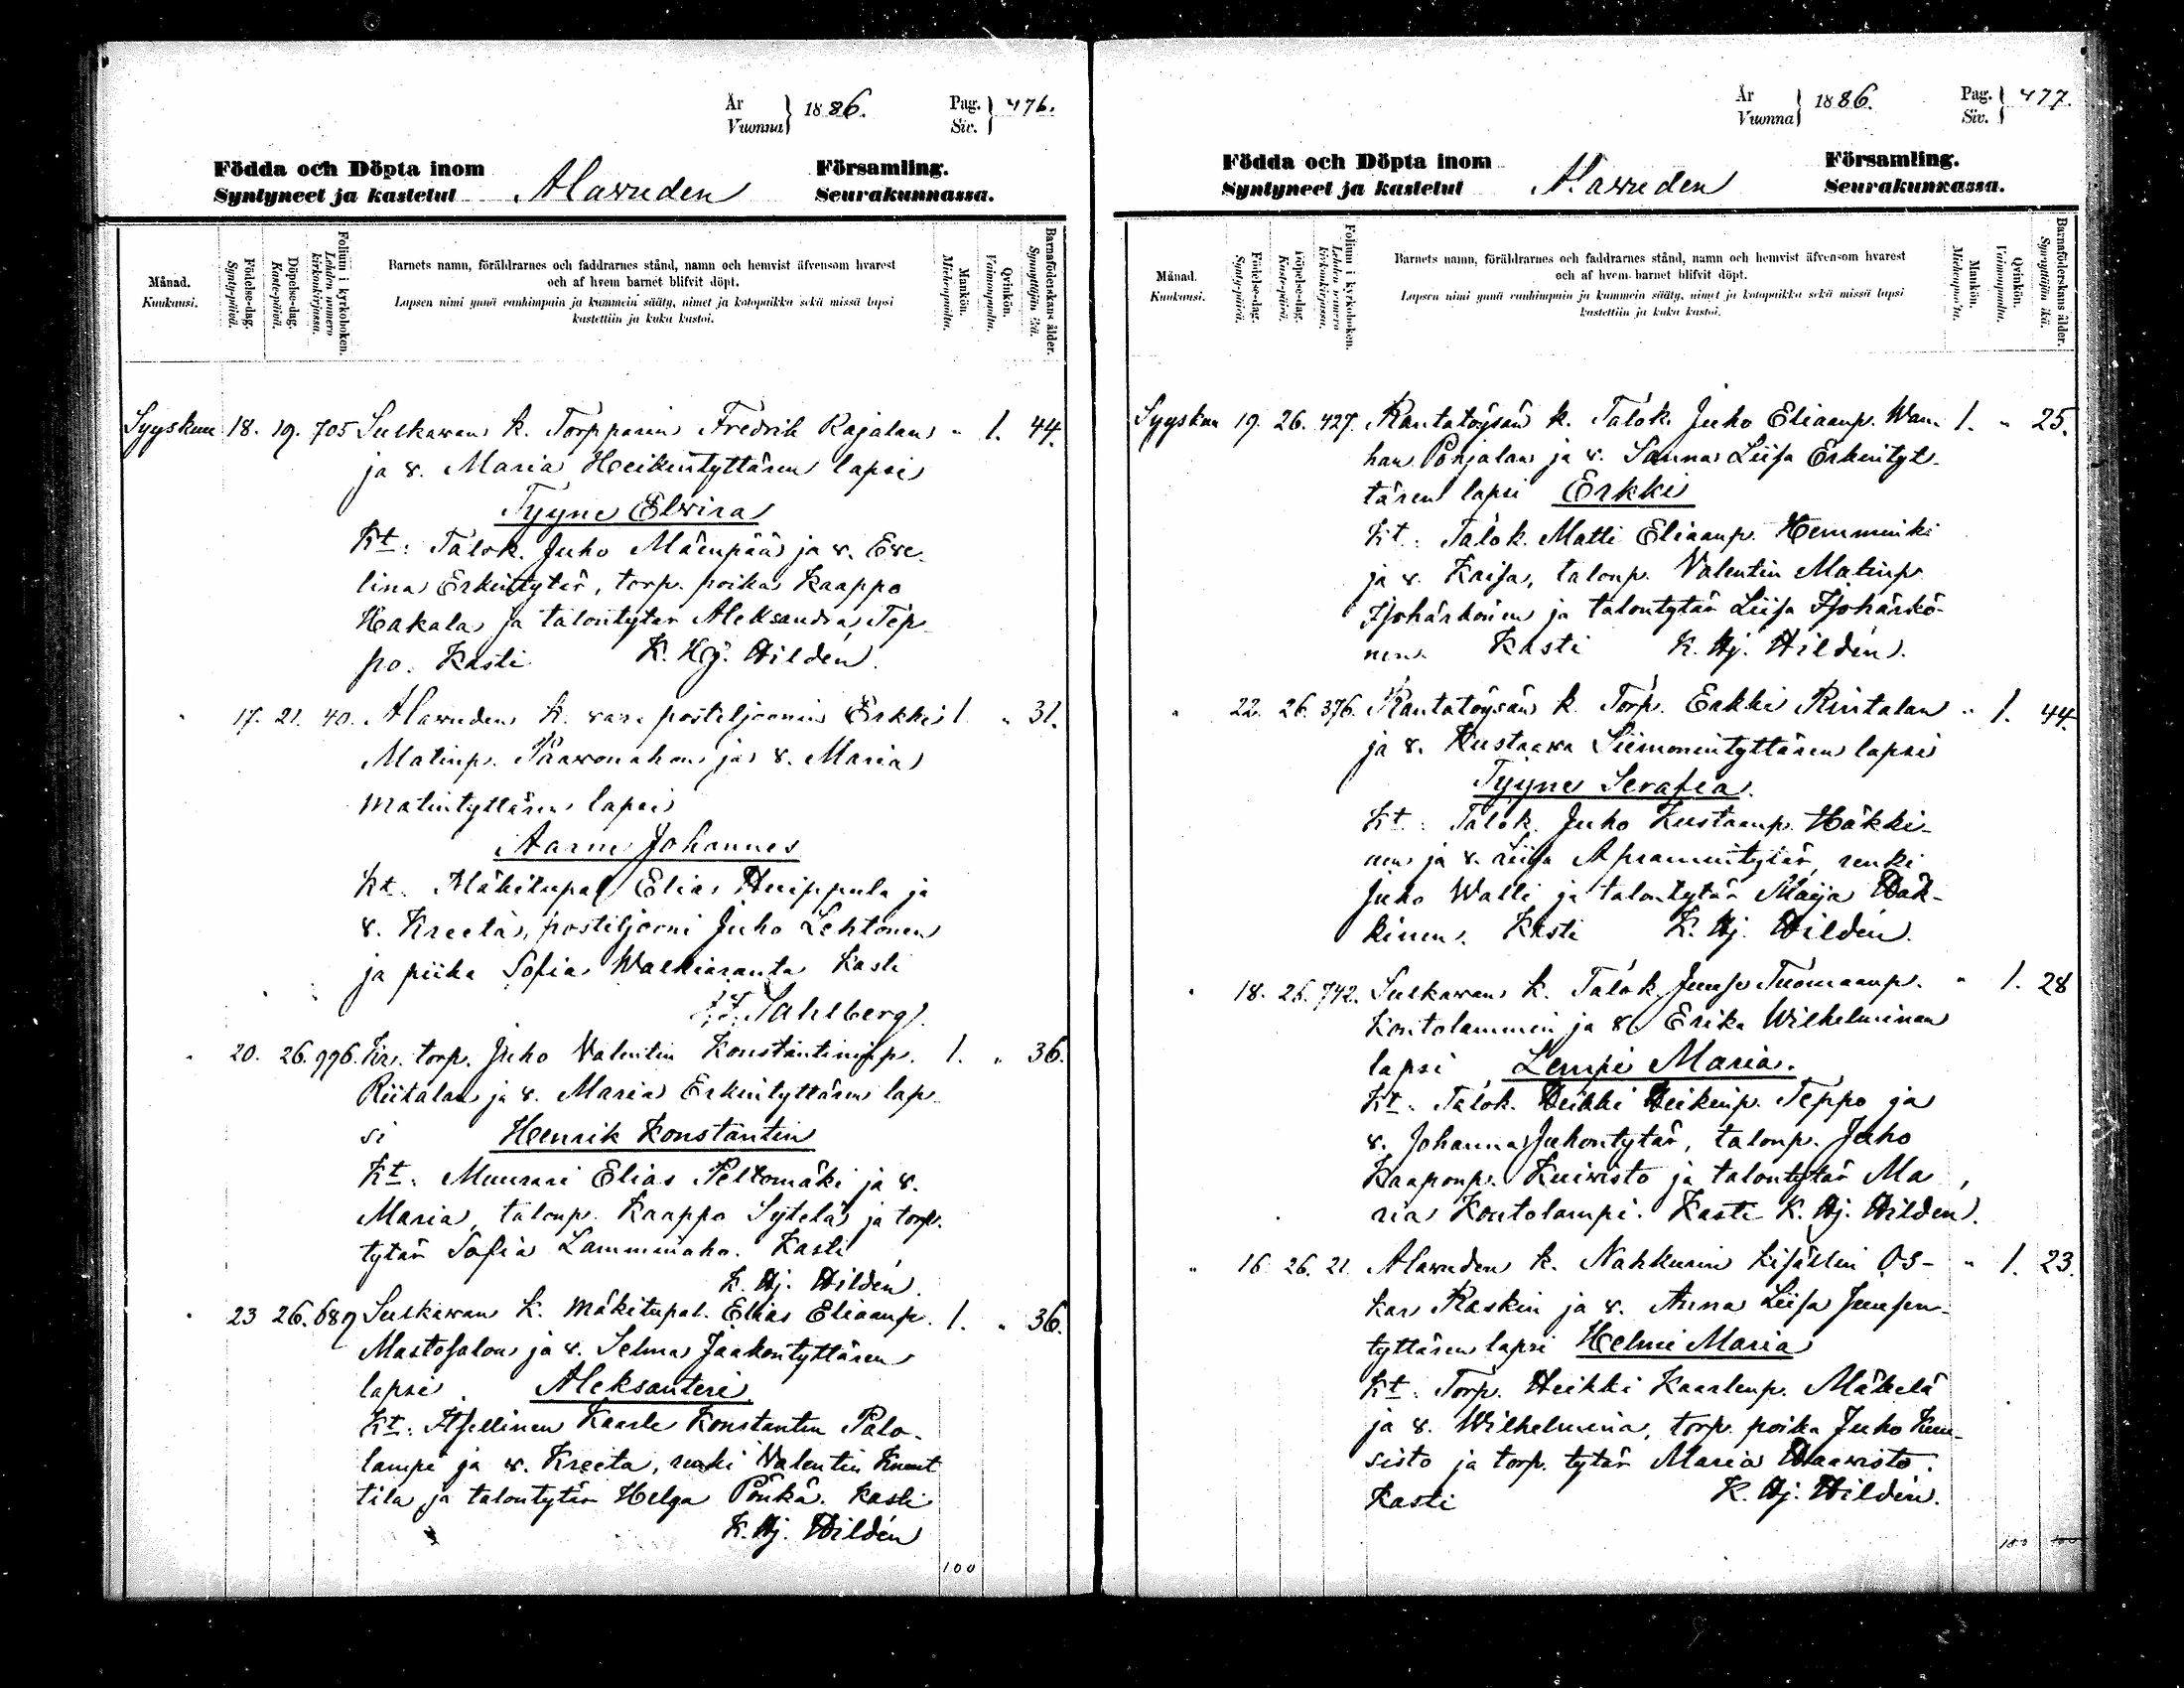 År
Vuonna } 1886.
Pag.
Siv. } 476.
Födda och Döpta inom
Syntyneet ja kastetut Alawuden
Församling.
Seurakunnassa.
Månad.
Kuukausi.
Födelse-dag.
Synty-päivä.
Döpelse-dag.
Kaste-päivä.
Folium i kyrkoboken.
Lehden numero
kirkonkirjassa.
Barnets namn, föräldrarnes och faddrarnes stånd, namn och hemvist äfvensom hvarest
och af hvem barnet blifvit döpt.
Lapsen nimi ynnä vanhimpain ja kummein sääty, nimet ja kotopaikka sekä missä lapsi
kastettiin ja kuka kastoi.
Mankön.
Miehenpuolta.
Qvinkön.
Vaimonpuolta.
Barnaföderskans ålder.
Synnyttäjän ikä.
Syyskuu 18. 19. 705 Sulkawan k. Torpparin Fredrik Rajalan " 1. 44.
ja v. Maria Heikintyttären lapsi
Tyyne Elwira
Kt: Talok. Juho Mäenpää ja v. Eve-
lina Erkintytär, torp. poika Kaappo
Hakala ja talontytär Aleksandra Tep
po. Kasti K. Hj. Hildén.
" 17. 21. 40. Alawuden k. vara postiljoonin Erkki 1. " 31.
Matinp. Paawonahon ja v. Maria
Matintyttären lapsi
Aarne Johannes
Kt. Mäkitupal Elias Huippula ja
v. Kreeta, postiljooni Juho Lehtonen
ja piika Sofia Walkiaranta Kasti
Sahlberg.
" 20. 26. 996. torp. Juho Valentin Konstantininp. 1. " 36.
Riitalan ja v. Maria Erkintyttären lap-
si Henrik Konstantin
Kt: Muurari Elias Peltomäki ja v.
Maria, talonp. Kaappo Sytelä ja torp.
tytär Sofia Lamminaho. Kasti
K. Hj. Hildén.
" 23 26. 689 Sulkawan k. Mäkitupal. Elias Eliaanp. 1. " 36.
Mastosalon ja v. Selma Jaakontyttären
lapsi Aleksanteri
Kt: Itsellinen Kaarle Konstantin Palo-
lampi ja v. Kreeta, renki Valentin Knuut
tila ja talontytär Helga Pönkä. Kasti
K. Hj. Hildén
100
År
Vuonna } 1886.
Pag.
Siv. } 477.
Födda och Döpta inom
Syntyneet ja kastetut Alawuden
Församling.
Seurakunnassa.
Månad.
Kuukausi.
Födelse-dag.
Synty-päivä.
Döpelse-dag.
Kaste-päivä.
Folium i kyrkoboken.
Lehden numero
kirkonkirjassa.
Barnets namn, föräldrarnes och faddrarnes stånd, namn och hemvist äfvensom hvarest
och af hvem barnet blifvit döpt.
Lapsen nimi ynnä vanhimpain ja kummein sääty, nimet ja kotopaikka sekä missä lapsi
kastettiin ja kuka kastoi.
Mankön.
Miehenpuolta.
Qvinkön.
Vaimonpuolta.
Barnaföderskans ålder.
Synnyttäjän ikä.
Syyskuu 19. 26. 427. Rantatöysän k. Talok. Juho Eliaanp. Wan- 1. " 25.
han Pohjalan ja v. Sanna Liisa Erkintyt-
tären lapsi Erkki
Kt.: Talok. Matti Eliaanp. Hemminki
ja v. Kaisa, talonp. Valentin Matinp
Isohärkönen ja talontytär Liisa Isohärkö-
nen. Kasti K. Hj. Hildén.
" 22. 26. 376. Rantatöysän k. Torp. Erkki Rintalan " 1. 44.
ja v. Kustaawa Siimonintyttären lapsi
Tyyne Serafia.
Kt: Talok. Juho Kustaanp. Häkki-
nen ja v. Liisa Apramintytär, renki
Juho Walli ja talontytär Maija Häk-
kinen. Kasti K. Hj. Hildén.
" 18. 26. 742. Sulkawan k. Talok. Juuso Tuomaanp. " 1. 28
Kontolammin ja v. Erika Wilhelminan
lapsi Lempi Maria.
Kt: Talok. Heikki Heikinp. Teppo ja
v. Johanna Juhontytär, talonp. Juho
Kaaponp. Kuiwisto ja talontytär Ma
ria Kontolampi. Kasti K. Hj. Hildén.
" 16 26. 21. Alawuden k. Nahkurin kisällin Os- " 1. 23.
kar Raskin ja v. Anna Liisa Juuson-
tyttären lapsi Helmi Maria
Kt: Torp. Heikki Kaarlenp. Mäkelä
ja v. Wilhelmina, torp. poika Juho Kuu-
sisto ja torp. tytär Maria Haawisto.
Kasti K. Hj. Hildén.
100 100